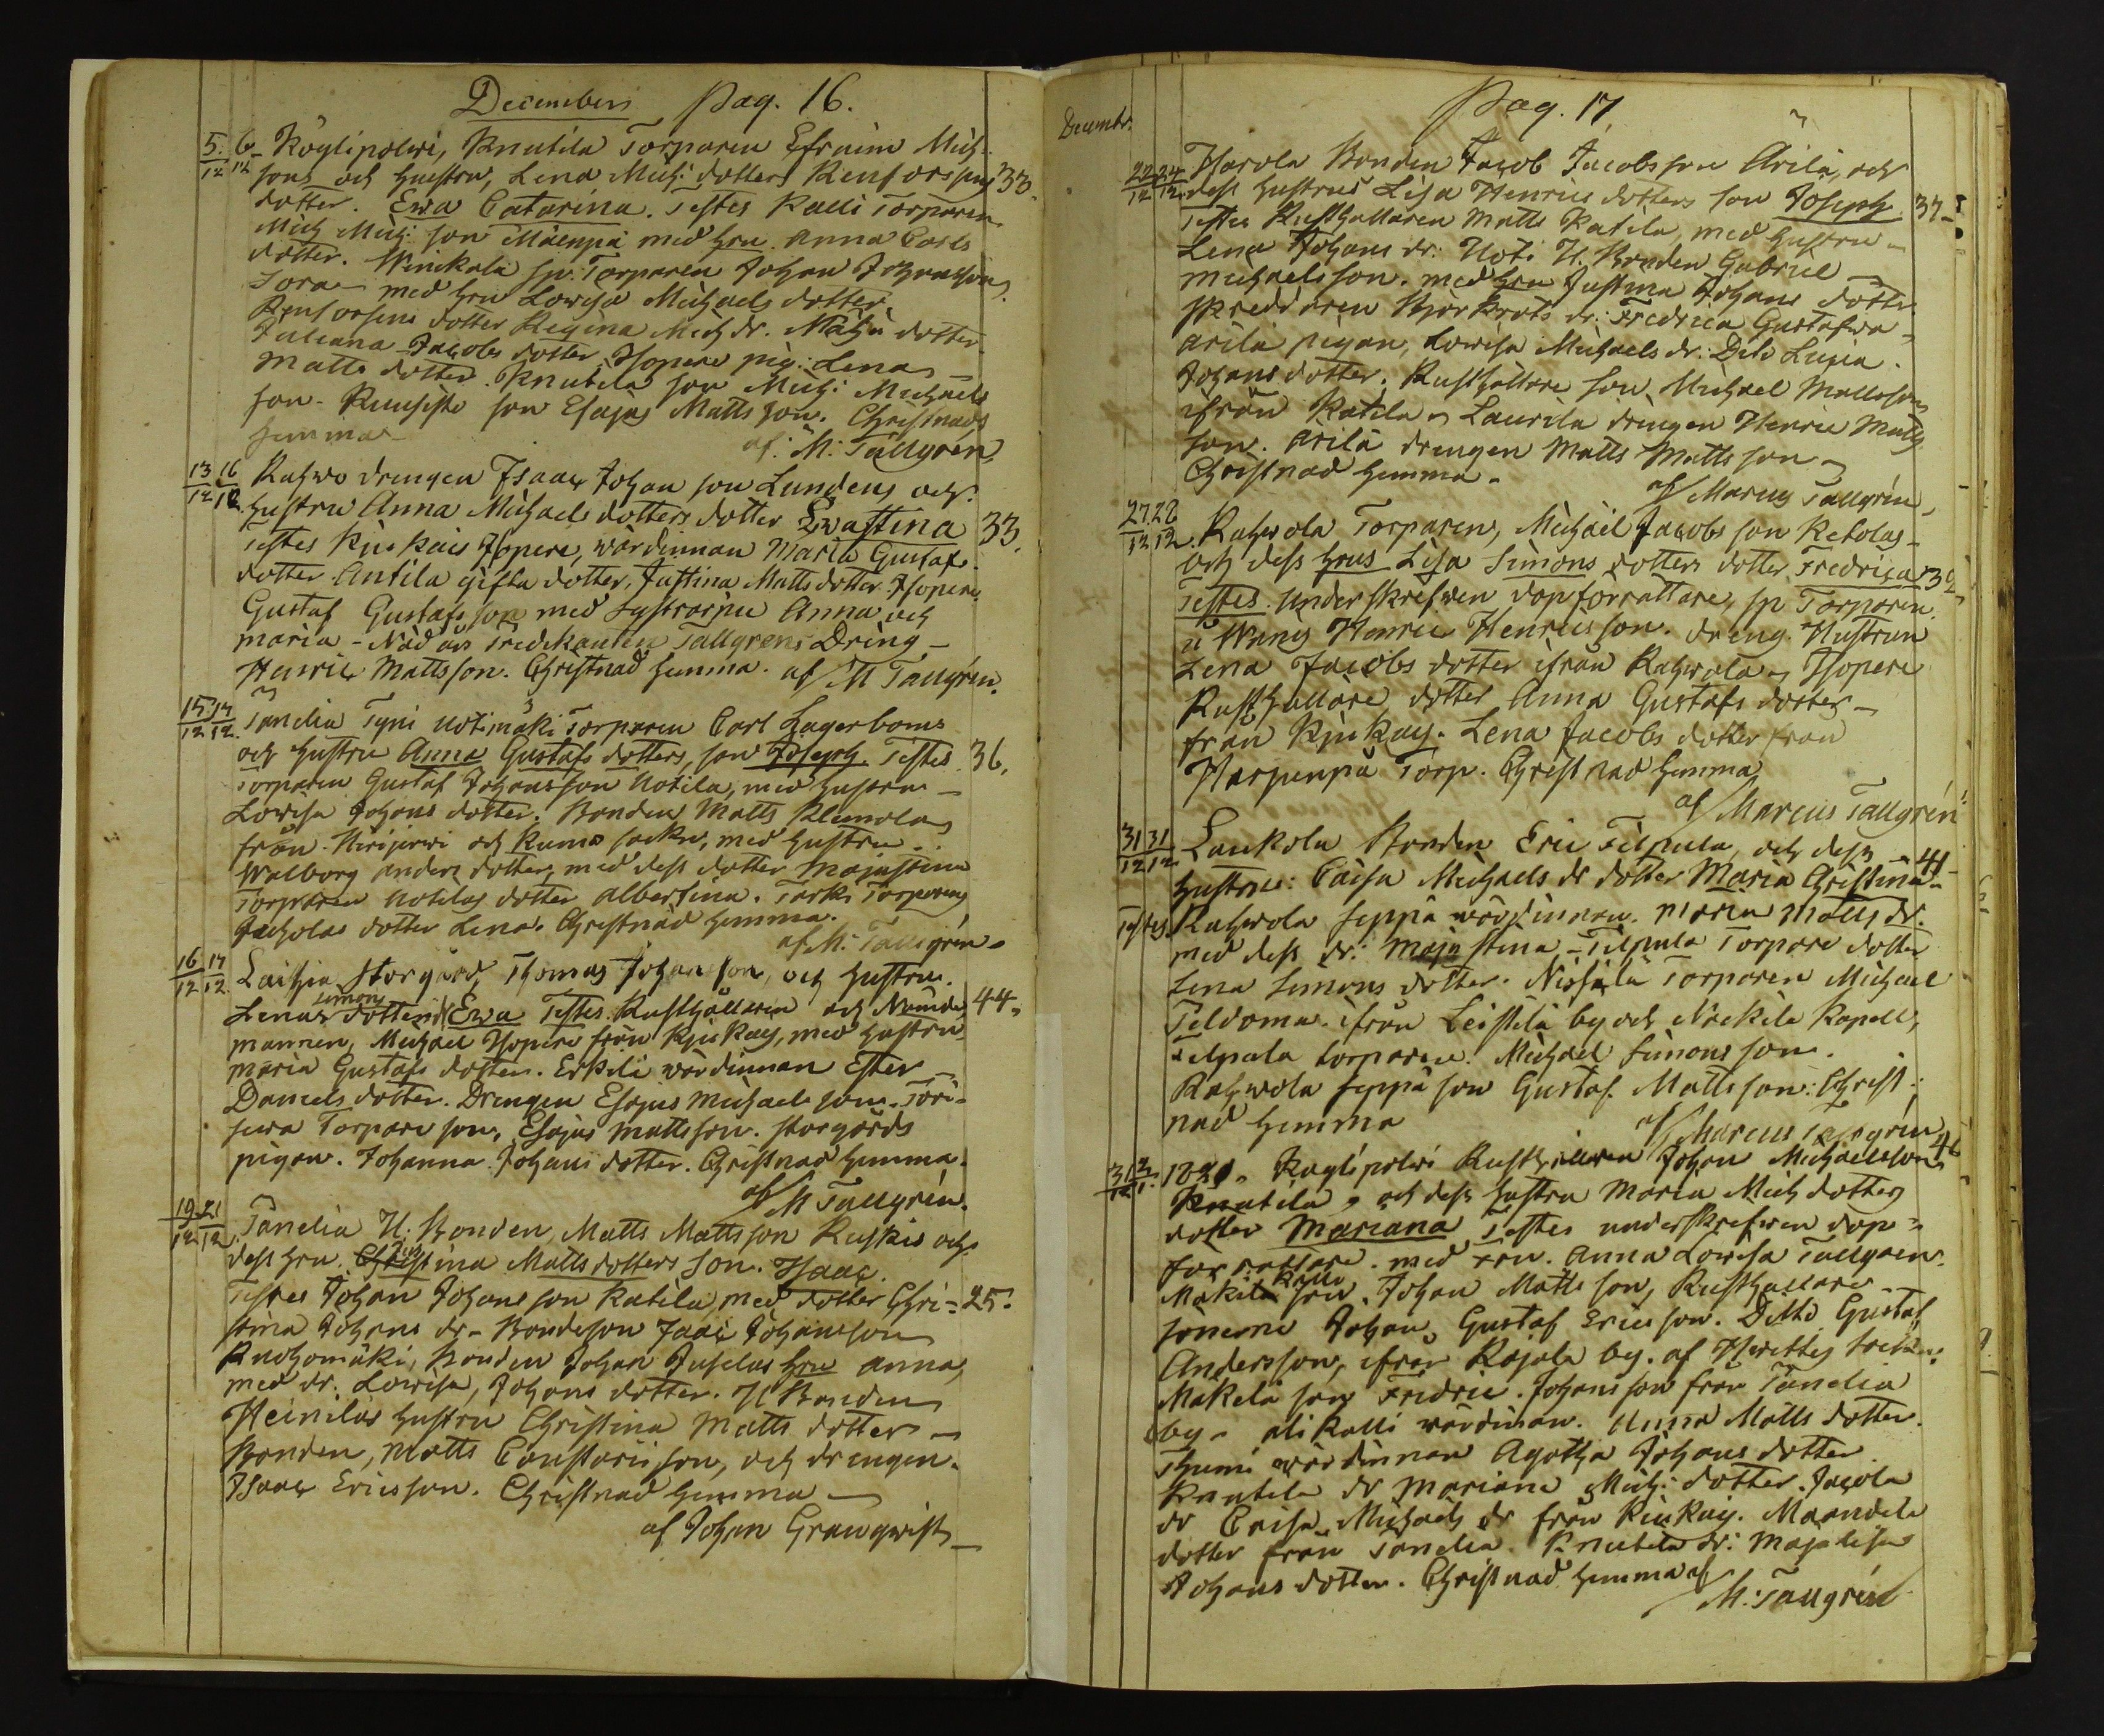 Decembers Pag. 16.
5. 6 Köylipolvi, Knutila Torparen Efraim Mich:
12 12 sons och hustru, Lena Mich: dotters Renforssens 33.
dotter. Ewa Catarina. Testes Kalli Torparen
Mich Mich: son Mäenpä med hru Anna Carls
dotter. Winikala sp: Torparen Johan Johansson
Sora med hru Lowisa Michaels dotter,
Renforsens dotter Regina Mich dr. Mattu dotter
Juliana Jacobs dotter, Isopere pig: Lena
Matts dotter. Knutila son Mich: Michaels
son - Ruusiste son Esajas Matts son. Christnads
hemma - af: M: Tallgren,
13 16 Rahwo drengen Isaac Johan son Lundens och
12 12. hustru Anna Michaels dotters dotter Ewastina 33.
Testes Kjukais Isopere, wärdinnan Maria Gustafs
dotter. Antila gifta dotter, Justina Matts dotter. Isopere
Gustaf Gustafs son med systrarne Anna och
Maria - Nådårs Predikanten Tallgrens Dräng -
Henric Mattsson. Christnad hemma. af M Tallgrén.
15 17 Tanelia Tyni Uotimäki Torparen Carl Lagerboms
12 12. och hustru Anna Gustafs dotters, son Joseph. Testes 36.
Torparen Gustaf Johansson Uotila, med hustru
Lowisa Johans dotter. Bonden Matts Klemolas
från Hirijerwi och Kumo sockn, med hustru
Walborg Anders dotter, med dess dotter Majastina
Torparen Uotilas dotter Albertina. Torparens
dotter Lena. Christnad hemma.
af M: Tallgrén -
16 17 Laihia Storgård, Thomas Johansson, och hustru
12 12. Lenas Simons dotters Ewa Testes Rusthållaren och Nämde 44.
mannen, Michael Isopere från Kjukais, med hustru
Maria Gustafs dotter. Erkilä wärdinnan Ester
Daniels dotter. Drengen Esajas Michaels son.
Torpare son, Esajas Mattsson. Storgårds
pigan. Johanna Johans dotter. Christnad hemma.
af M Tallgrén.
19 21 Tanelia H: Bonden, Matts Mattsson Ruskis och
12 12. dess hru. Christina Matts dotters Son. Isaac.
Testes Johan Johans son Katila, med dotter Chri= 25.
stina Johans dr - Bondeson Isaac Johansson
Ruohomäki, Bonden Johan Juselas hru Anna,
med dr: Lowisa, Johans dotter. H Bonden
Heinilas hustru Christina Matts dotter -
Bonden, Matts son, och drengen.
Isaac Ericsson. Christnad hemma -
af Johan Granqwist -
Decembr. Pag. 17
22 24 Harola Bonden Jacob Jacobsson Arilä, och
12 12. dess hustrus Lisa Henrics dotters son Joseph 37-
Testes Rusthållaren Matts Katila, med hustru -
Lena Johans dr: Uoti H. Bonden Gabriel -
Michaelsson. med hru Justina Johans dotter.
Skreddaren Björkrots dr: Fredrica Gustafwa =
Arilä pigan, Lowisa Michaels dr: Dito
Johans dotter. Rusthållare son, Michael Mattsson
ifrån Katila - Laurila drengen Henric Matts
son. Arilä drengen Matts Matts son -
Christnad hemma.
af Marcus Tallgrén,
27 28 Rahwola Torparen, Michäel Jacobs son Ketolas -
12 12. och dess hrus Lisa Simons dotters dotter Fredrica 39
Testes. Underskrefwen dopförrättare, sp Torparen
Henric Henricsson. dreng. Hustrun
Lena Jacobs dotter ifrån Rahwola - Isopere
Rusthållare, dotter Anna Gustafs dotter -
från Kjukais. Lena Jacobs dotter från
Harpenpä Torp. Christnad hemma
af Marcus Tallgrén
31 31 Laukola Bonden Eric Filpula, och dess
12 12. hustru: Caisa Michaels dr dotter Maria Christina 41
Testes. Rahwola seppä wärdinnan. Maria Matts dr.
med dess dr: Majastina - Filpula Torpare dotter
Lena Simons dotter. Torparen Michael
Peldoma. ifrån Leistilä by och Nackila Kapell,
Filpula torparen. Michäel Simons son.
Rahwola seppä son Gustaf. Mattsson: Christ:
nad hemma af Marcus Tallgrén
31 2 1821. Köylipolvi Rusthållaren Johan Michaelsson 46
12 1. Knutila, och dess hustru Maria Mich dotters
dotter Mariana Testes underskrefwen dop=
förrättare. med Fru. Anna Lowisa Tallgren.
Makila Kallo son. Johan Matts son, Rusthållare
sonerne Johan, Gustaf Ericsson. Ditto Gustaf
Andersson, ifrån Kojola by. af Hwittis
Makelä son Fredric. Johansson från Tanelia
by - alikalli wärdinan. Anna Matts dotter.
wärdinnan Agatha Johans dotter
Knutila dr Mariana Mich: dotter.
dr Caisa Michaels dr från Kiukais. Maandela
dotter från Tanelia. Knutila dr: Majalisa
Johans dotter. Christnad hemma af
M: Tallgrén